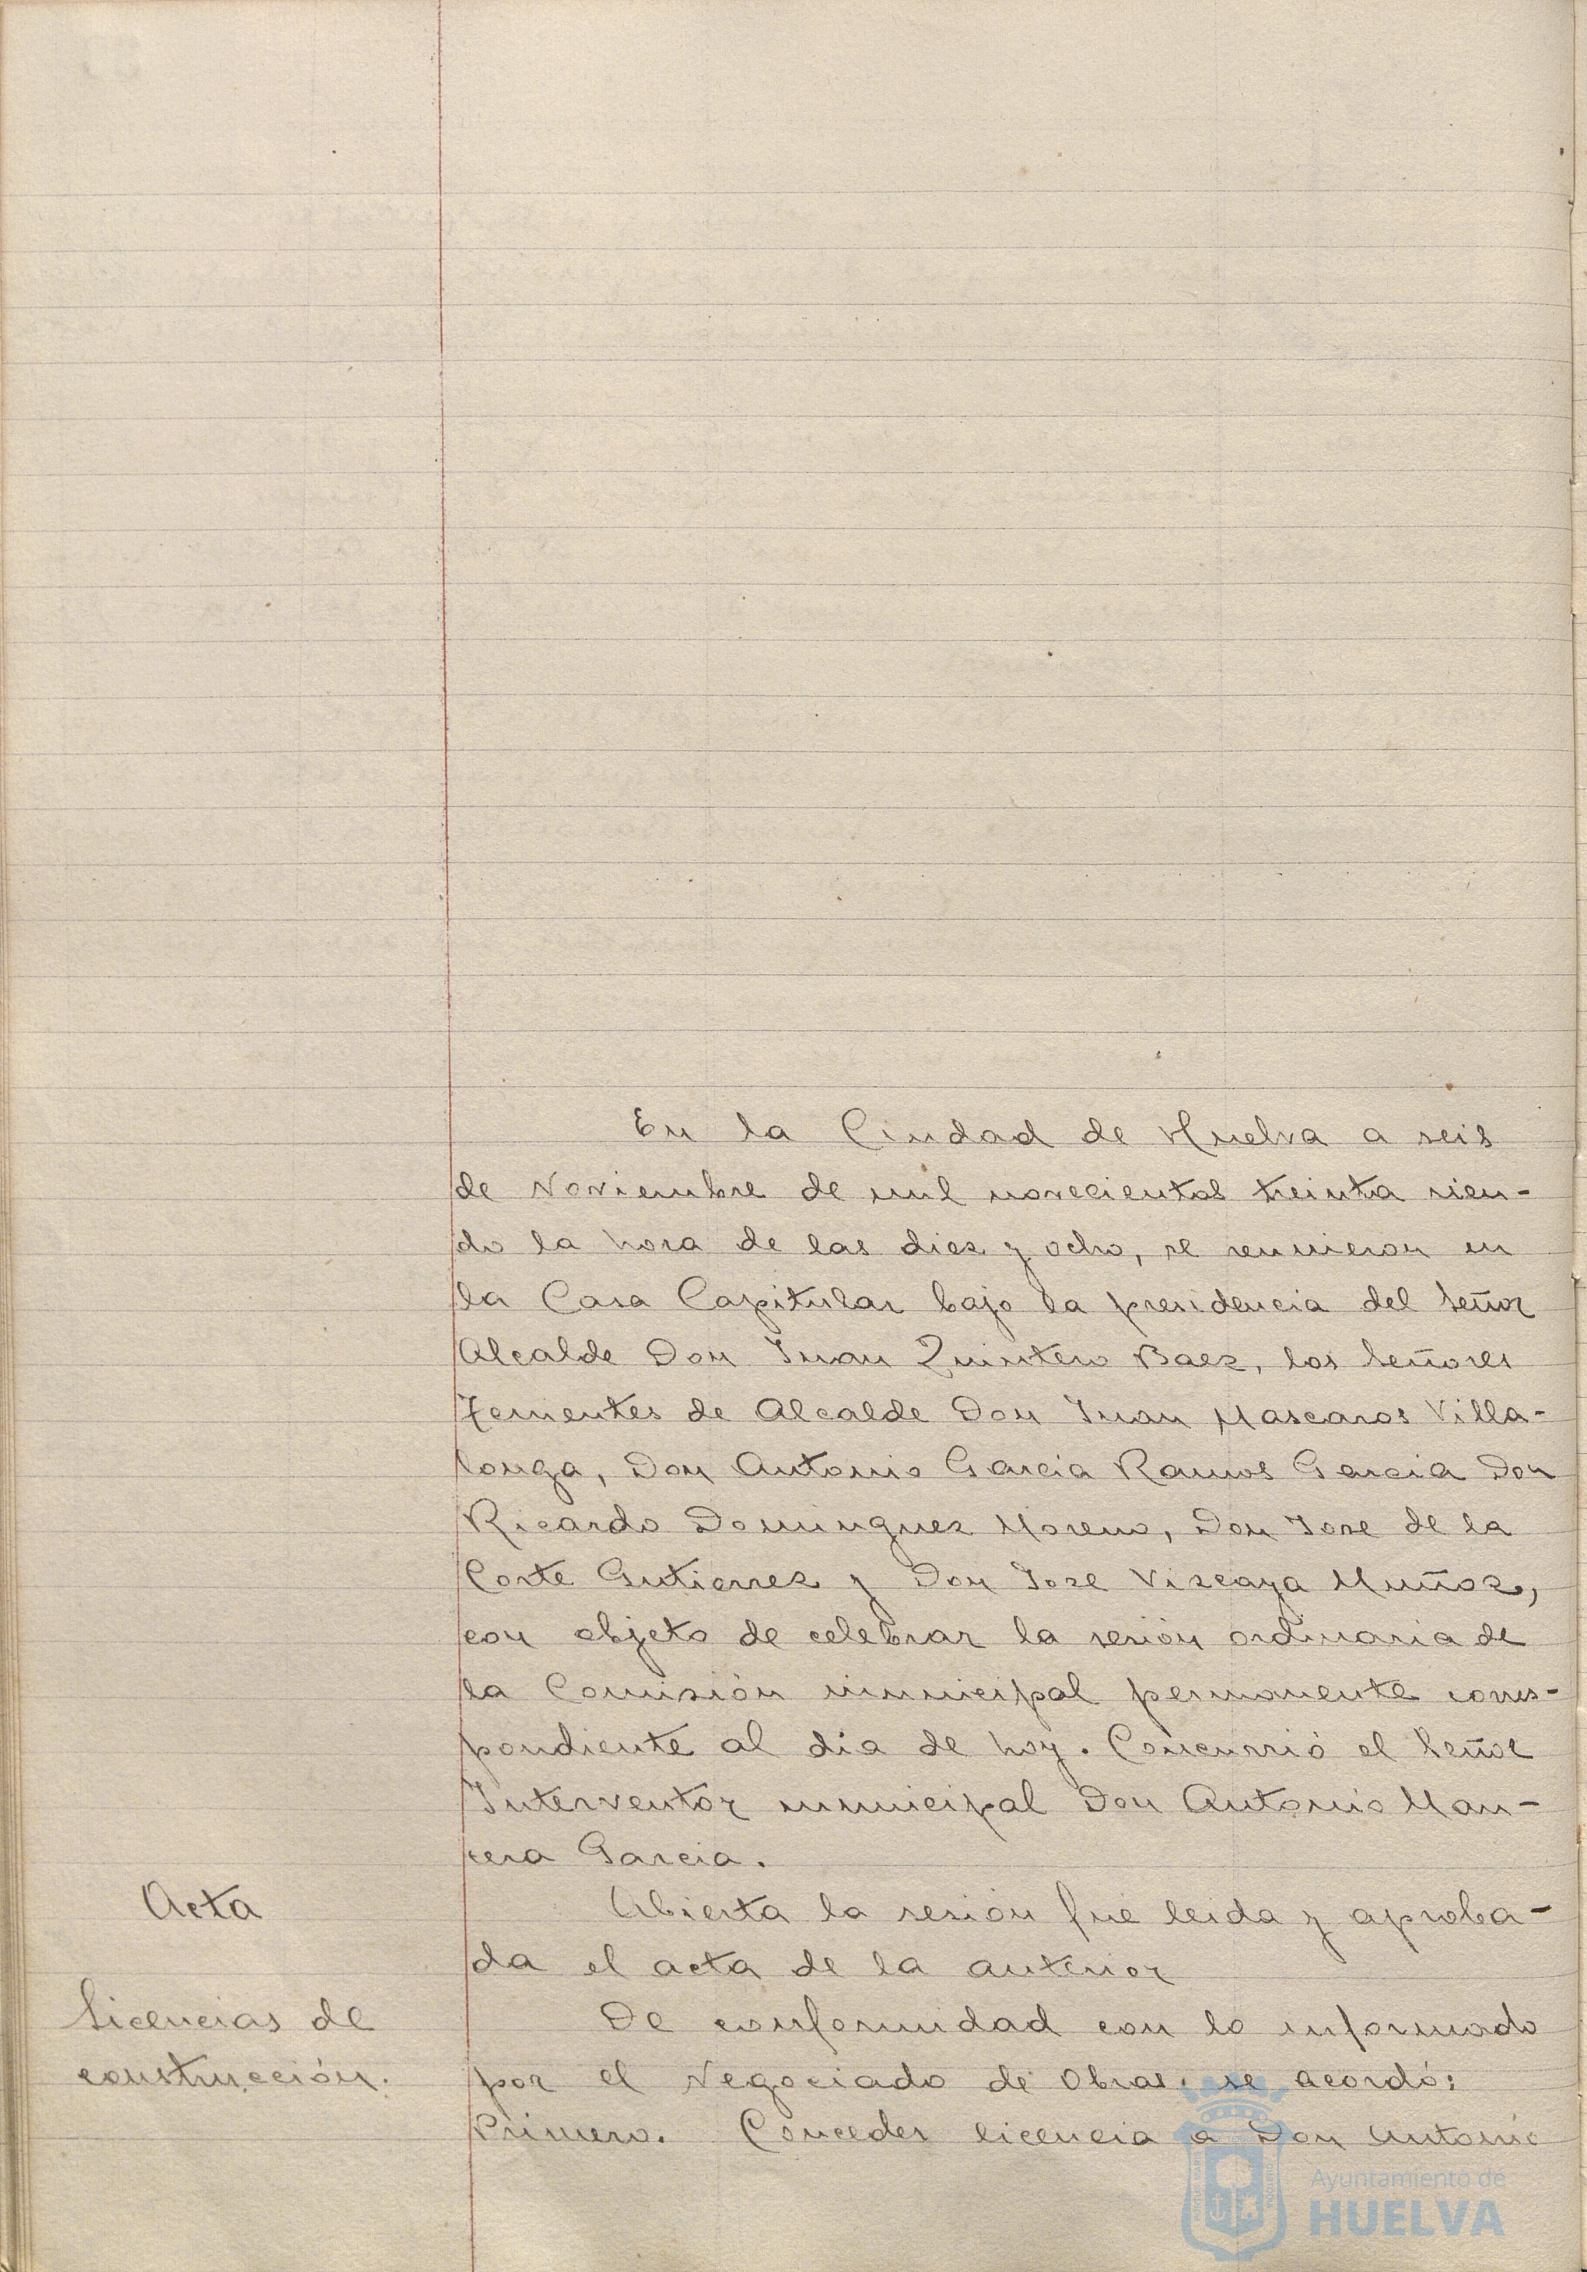 En la Ciudad de Huelva a seis
de Noviembre de mil novecientos treinta sien-
do la hora de las diez y ocho, se reunieron en
la Casa Capitular bajo la presidencia del Señor
Alcalde Don Juan Quintero Baez, los Señores
Tenientes de Alcalde Don Juan Mascaros Villa-
longa, Don Antonio Garcia Ramos Garcia Don
Ricardo Dominguez Moreno, Don Jose de la
Corte Gutierrez y Don Jose Viscaya Muñoz,
con objeto de celebrar la sesión ordinaria de
la Comisión municipal permanente corres-
pondiente al dia de hoy. Concurrió el Señor
Interventor municipal Don Antonio Man-
cera Garcia.
Acta
Abierta la sesión fué leida y aproba-
da el acta de la anterior
Licencias de
construcción.
De conformidad con lo informado
por el Negociado de Obras, se acordó:
Primero. Conceder licencia a Don Antonio
Ayuntamiento de
HUELVA